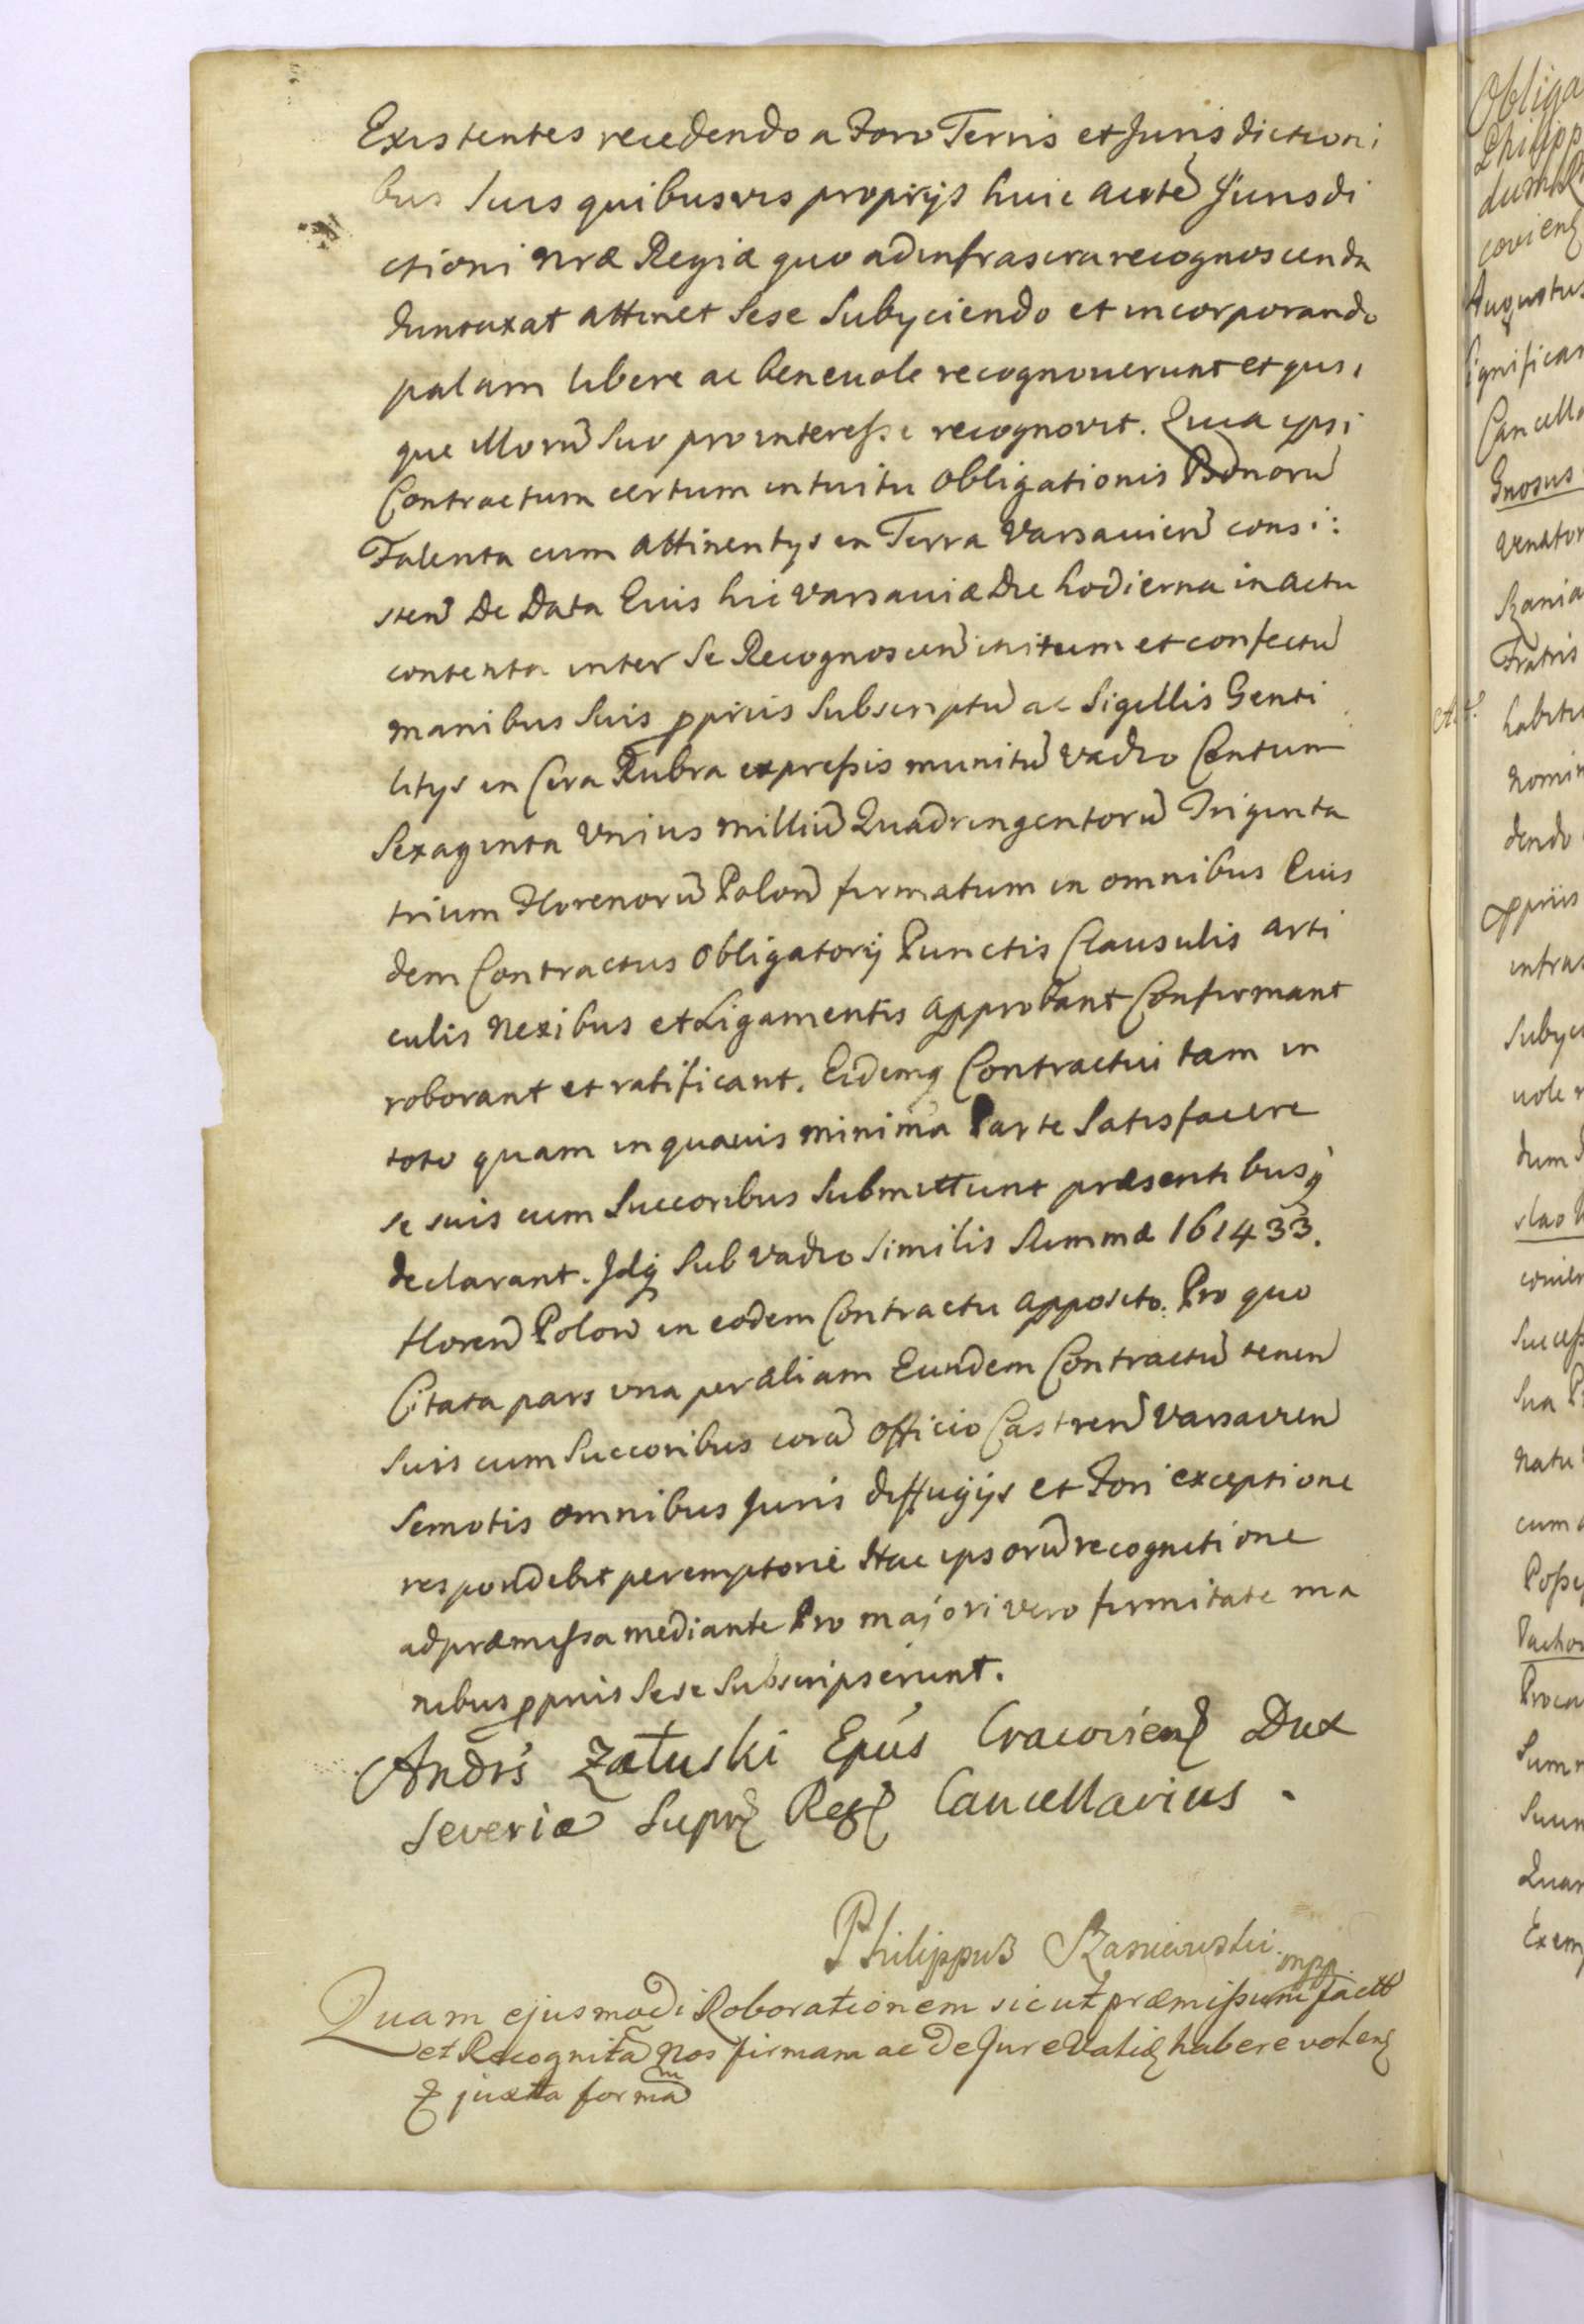 Existentes recedendo a Foro Terris et Jurisdictioni
bus suis quibusvis proprijs huic autẽ Jurisdi
ctioni nræ Regiæ quo ad infrascra recognoscenda
duntaxat attinet sese subyciendo et incorporando
palam libere ac beneuole recognouerunt et quis,
que illorũ suo pro interesse recognovit. Quia ipsi
Contractum certum intuitu obligationis Bonorũ
Falenta cum attinentys in Terra Varsauien̄ consi:
sten̄ De Data Euis hic Varsauiæ Die hodierna in actu
contenta inter se Recognoscen̄ initum et confectũ
manibus suis ppriis subscriptũ ac Sigillis Genti
litys in Cera Rubra expressis munitũ Vadio Centum
Sexaginta Unius Milliũ Quadringentorũ Triginta
trium Florenorũ Polon̄ firmatum in omnibus Euis
dem Contractus Obligatorij Punctis Clausulis arti
culis Nexibus et Ligamentis approbant Confirmant
roborant et ratificant. Eidemq Contractui tam in
toto quam in quauis minima Parte Satisfacere
se suis cum Succoribus submittunt præsentibusq
declarant. Idq sub Vadio similis summæ 161433.
Floren̄ Polon̄ in eodem Contractu apposito. Pro quo
Citata pars una per aliam Eundem Contractũ tenen̄
suis cum Succoribus corã Officio Castren̄ Varsavien̄
semotis omnibus Juris diffugijs et Fori exceptione
respondebit peremptorie Hac ipsorũ recognitione
ad præmissa mediante Pro majori vero firmitate ma
nibus ppriis sese subscripserunt.
Andrs Załuski Epus Cracovien Dux
Severiæ Supr Reg Cancellarius.
Philippus Raniewski mpp
Quam ejusmodi Roborationem sicut præmissum facto
et Recognita Nos firmam ac De Jure Valid habere volen
juxta formam
Obliga
Philipp
covien
Augustus
significa
Cancella
Gnosus
Venator
Fratris
habitu
nomin
dendo
ppriis
infras
subyci
uole r
dum
slao
Success
sua P
natu
cum
Posse
Proca
Summ
Suum
Quar
Exem